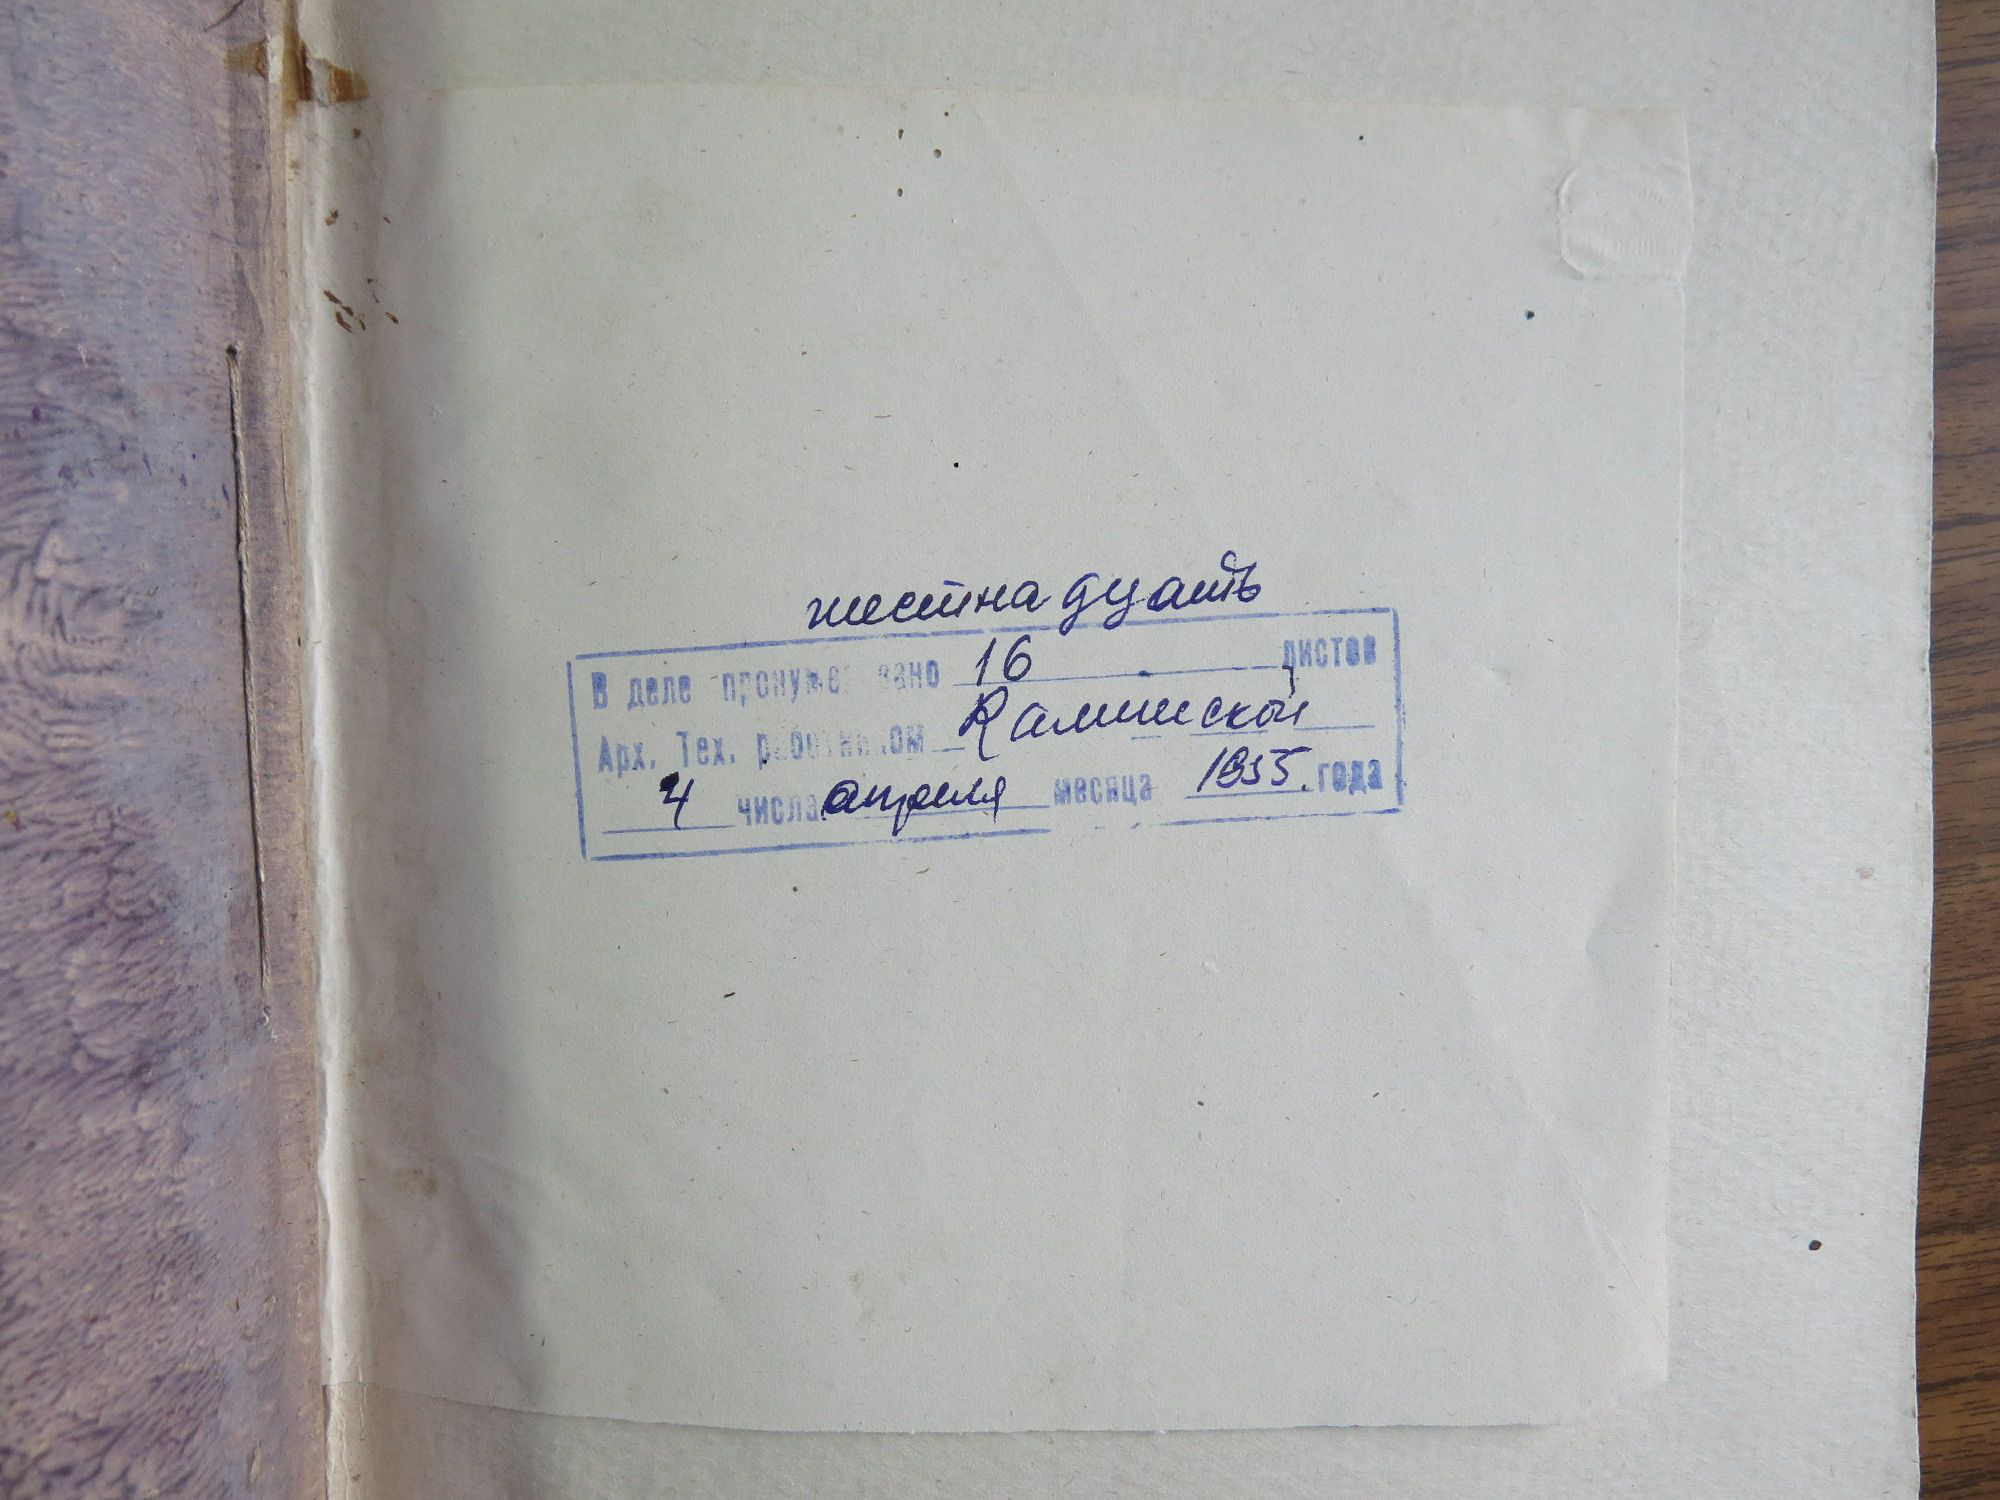 шестнадцать
В деле пронумеровано 16 листов
Арх. Тех. работником Каминской
4 числа апреля месяца 1955. года